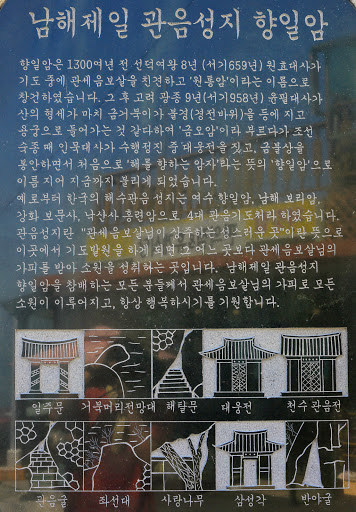 남해제일 관음성지 향일암
향일암은 1300여년 전 선덕여왕 8년 (서기659년) 원효대사가
기도 중에 관세음보살을 친견하고 '원통암'이라는 이름으로
창건하였습니다. 그 후 고려 광종 9년(서기958년) 윤필대사가
산의 형세가 마치 금거북이가 불경(경전바위)을 등에 지고
용궁으로 들어가는 것 같다하여 '금오암'이라 부르다가 조선
숙종 때 인묵대사가 수행정진 중 대웅전을 짓고, 금불상을
봉안하면서 처음으로 '해를 향하는 암자'라는 뜻의 '향일암'으로
이름 지어 지금까지 불리게 되었습니다.
예로부터 한국의 해수관음 성지는 여수 향일암, 남해 보리암,
강화 보문사, 낙산사 홍련암으로 4대 관음기도처라 하였습니다.
관음성지란 "관세음보살님이 상주하는 성스러운 곳"이란 뜻으로
이곳에서 기도발원을 하게 되면 그 어느 곳보다 관세음보살님의
가피를 받아 소원을 성취하는 곳입니다. 남해제일 관음성지
향일암을 참배하는 모든 분들께서 관세음보살님의 가피로 모든
소원이 이루어지고, 항상 행복하시기를 기원합니다.
일주문 거북머리전망대 해탈문 대웅전 천수관음전
관음굴 좌선대 사랑나무 삼성각 반야굴